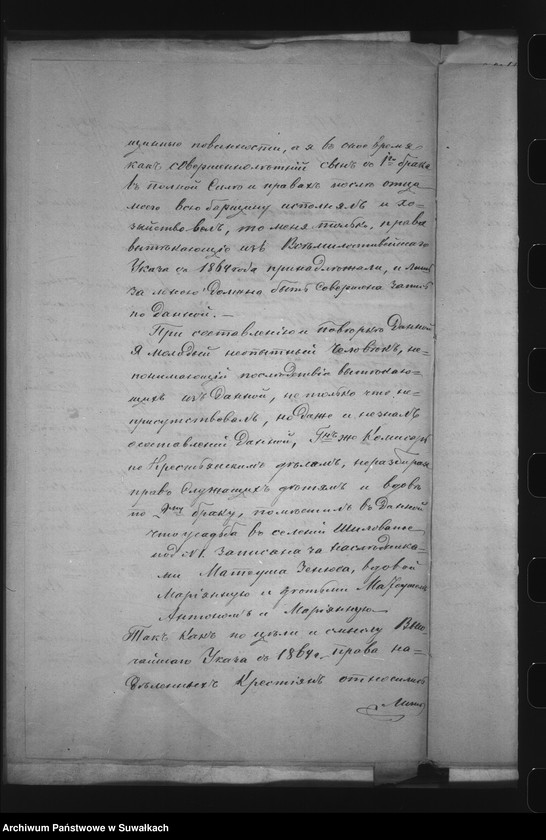 щинные повинности, а я в свое время
какъ совершеннолѣтній сынъ съ 1го брака
въ полной силѣ и правахъ послѣ отца
моего всю барщину исполнялъ и хо-
зяйствовалъ, то меня только, права
вытекающія изъ Всемилостивѣйшаго
Указа съ 1864 года принадлежали, и лишь
за мною должна быть совершена запись
по данной. —
При составленію и повѣркѣ Данной
я молодый неопытный человѣкъ, не-
понимающій послѣдствія вытекаю-
щихъ изъ Данной, не только что не-
присутствовалъ, но даже и незналъ
о составленіи Данной, Гнъ же Комисаръ
по Крестьянскимъ дѣламъ, неразбирая
правъ служащихъ дѣтямъ и вдовѣ
по 2му браку, помѣстилъ въ Данной
что усадьба въ селеніи Шиловане
под № записана за наслѣдника-
ми Матеуша Зенюса, вдовой
Маріянною и дѣтьми Матеушомъ
Антономъ и Маріянною
Такъ какъ по цѣли и смыслу Высо-
чайшаго Указа съ 1864 г. права на-
дѣленныхъ Крестьянъ относились
лишь
Archiwum Państwowe w Suwałkach